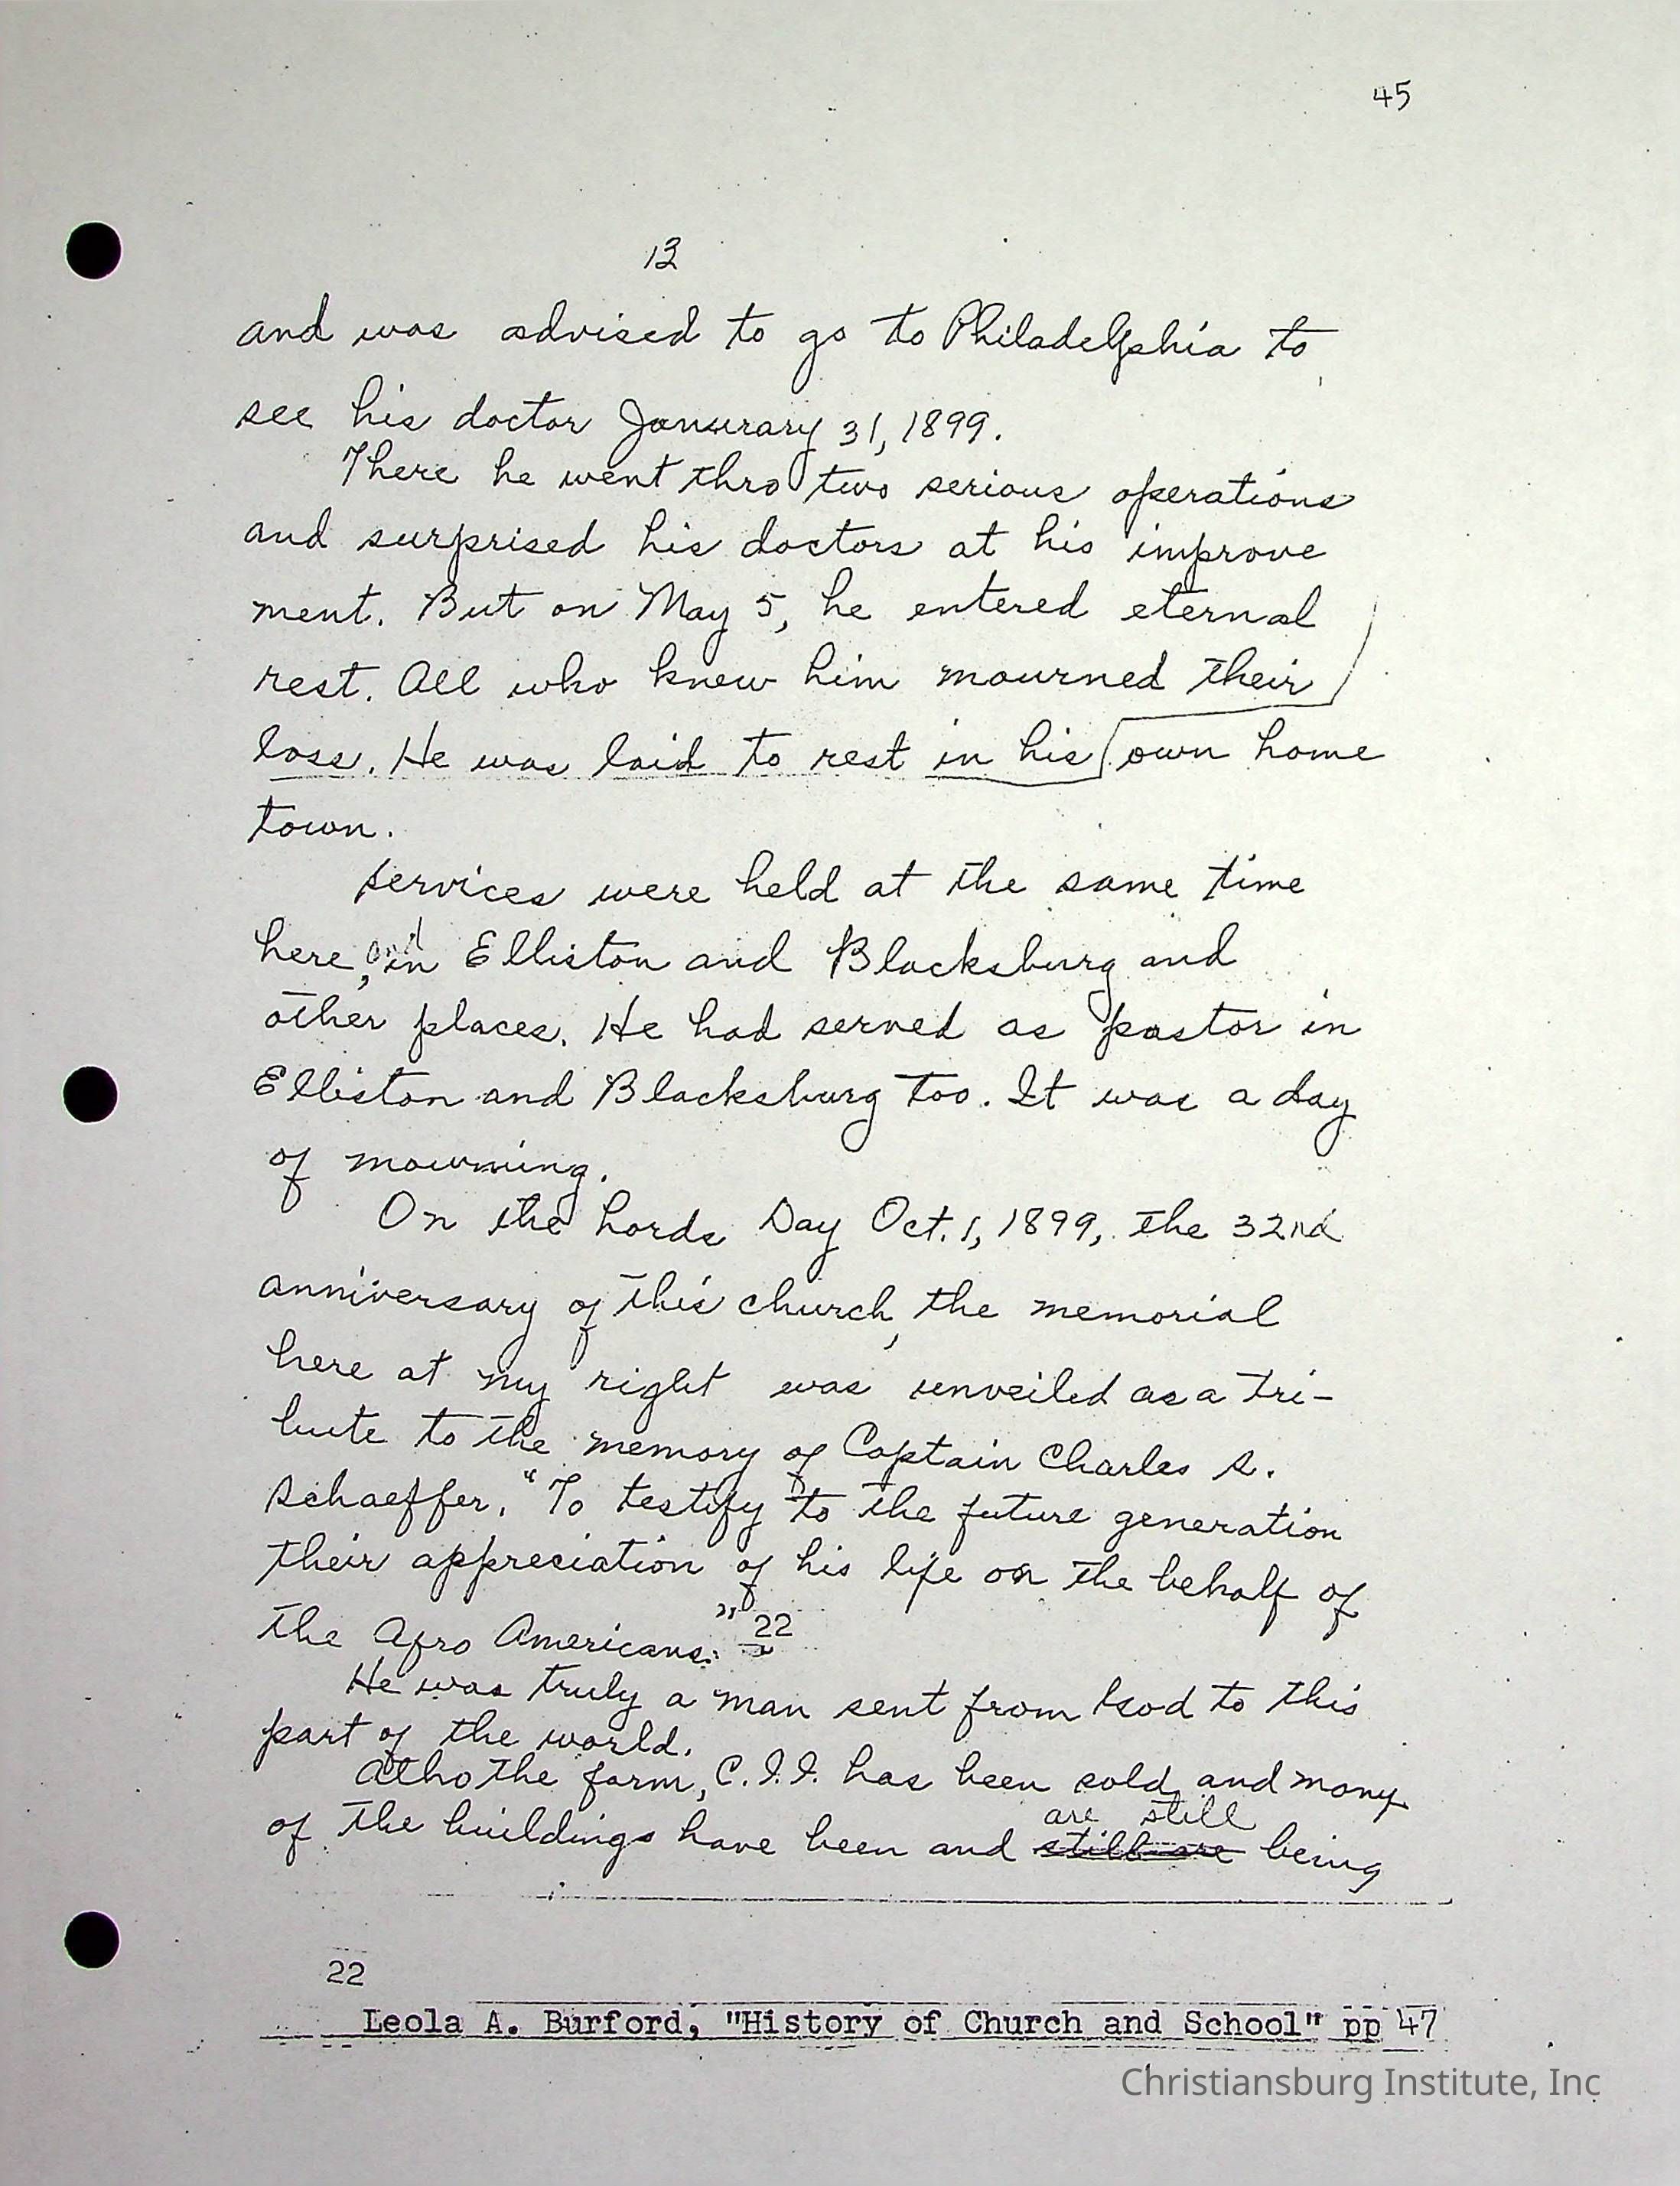 45
13
and was advised to go to Philadelphia to
see his doctor Janurary 31, 1899.
There he went thro two serious operations
and surprised his doctors at his improve
ment. But on May 5, he entered eternal
rest. All who knew him mourned their
loss. He was laid to rest in his own home
town.
Services were held at the same time
here, and in Elliston and Blacksburg and
other places. He had served as pastor in
Elliston and Blacksburg too. It was a day
of mourning.
On the Lords Day Oct. 1, 1899, the 32nd
anniversary of this church, the memorial
here at my right was unveiled as a tri-
bute to the memory of Captain Charles S.
Schaeffer. "To testify to the future generation
their appreciation of his life on the behalf of
the Afro Americans." 22
He was truly a man sent from God to this
part of the world.
Altho the farm, C.I.I. has been sold, and many
are still
of the buildings have been and still are being
22
Leola A. Burford, "History of Church and School" pp 47
Christiansburg Institute, Inc